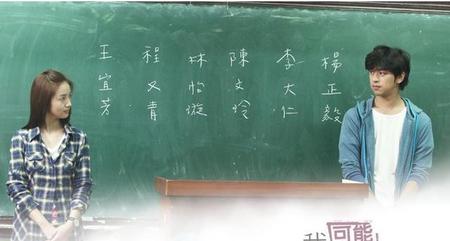 楊正毅
李大仁
陳文玲
林怡璇
程又青
王宜芳
我可能